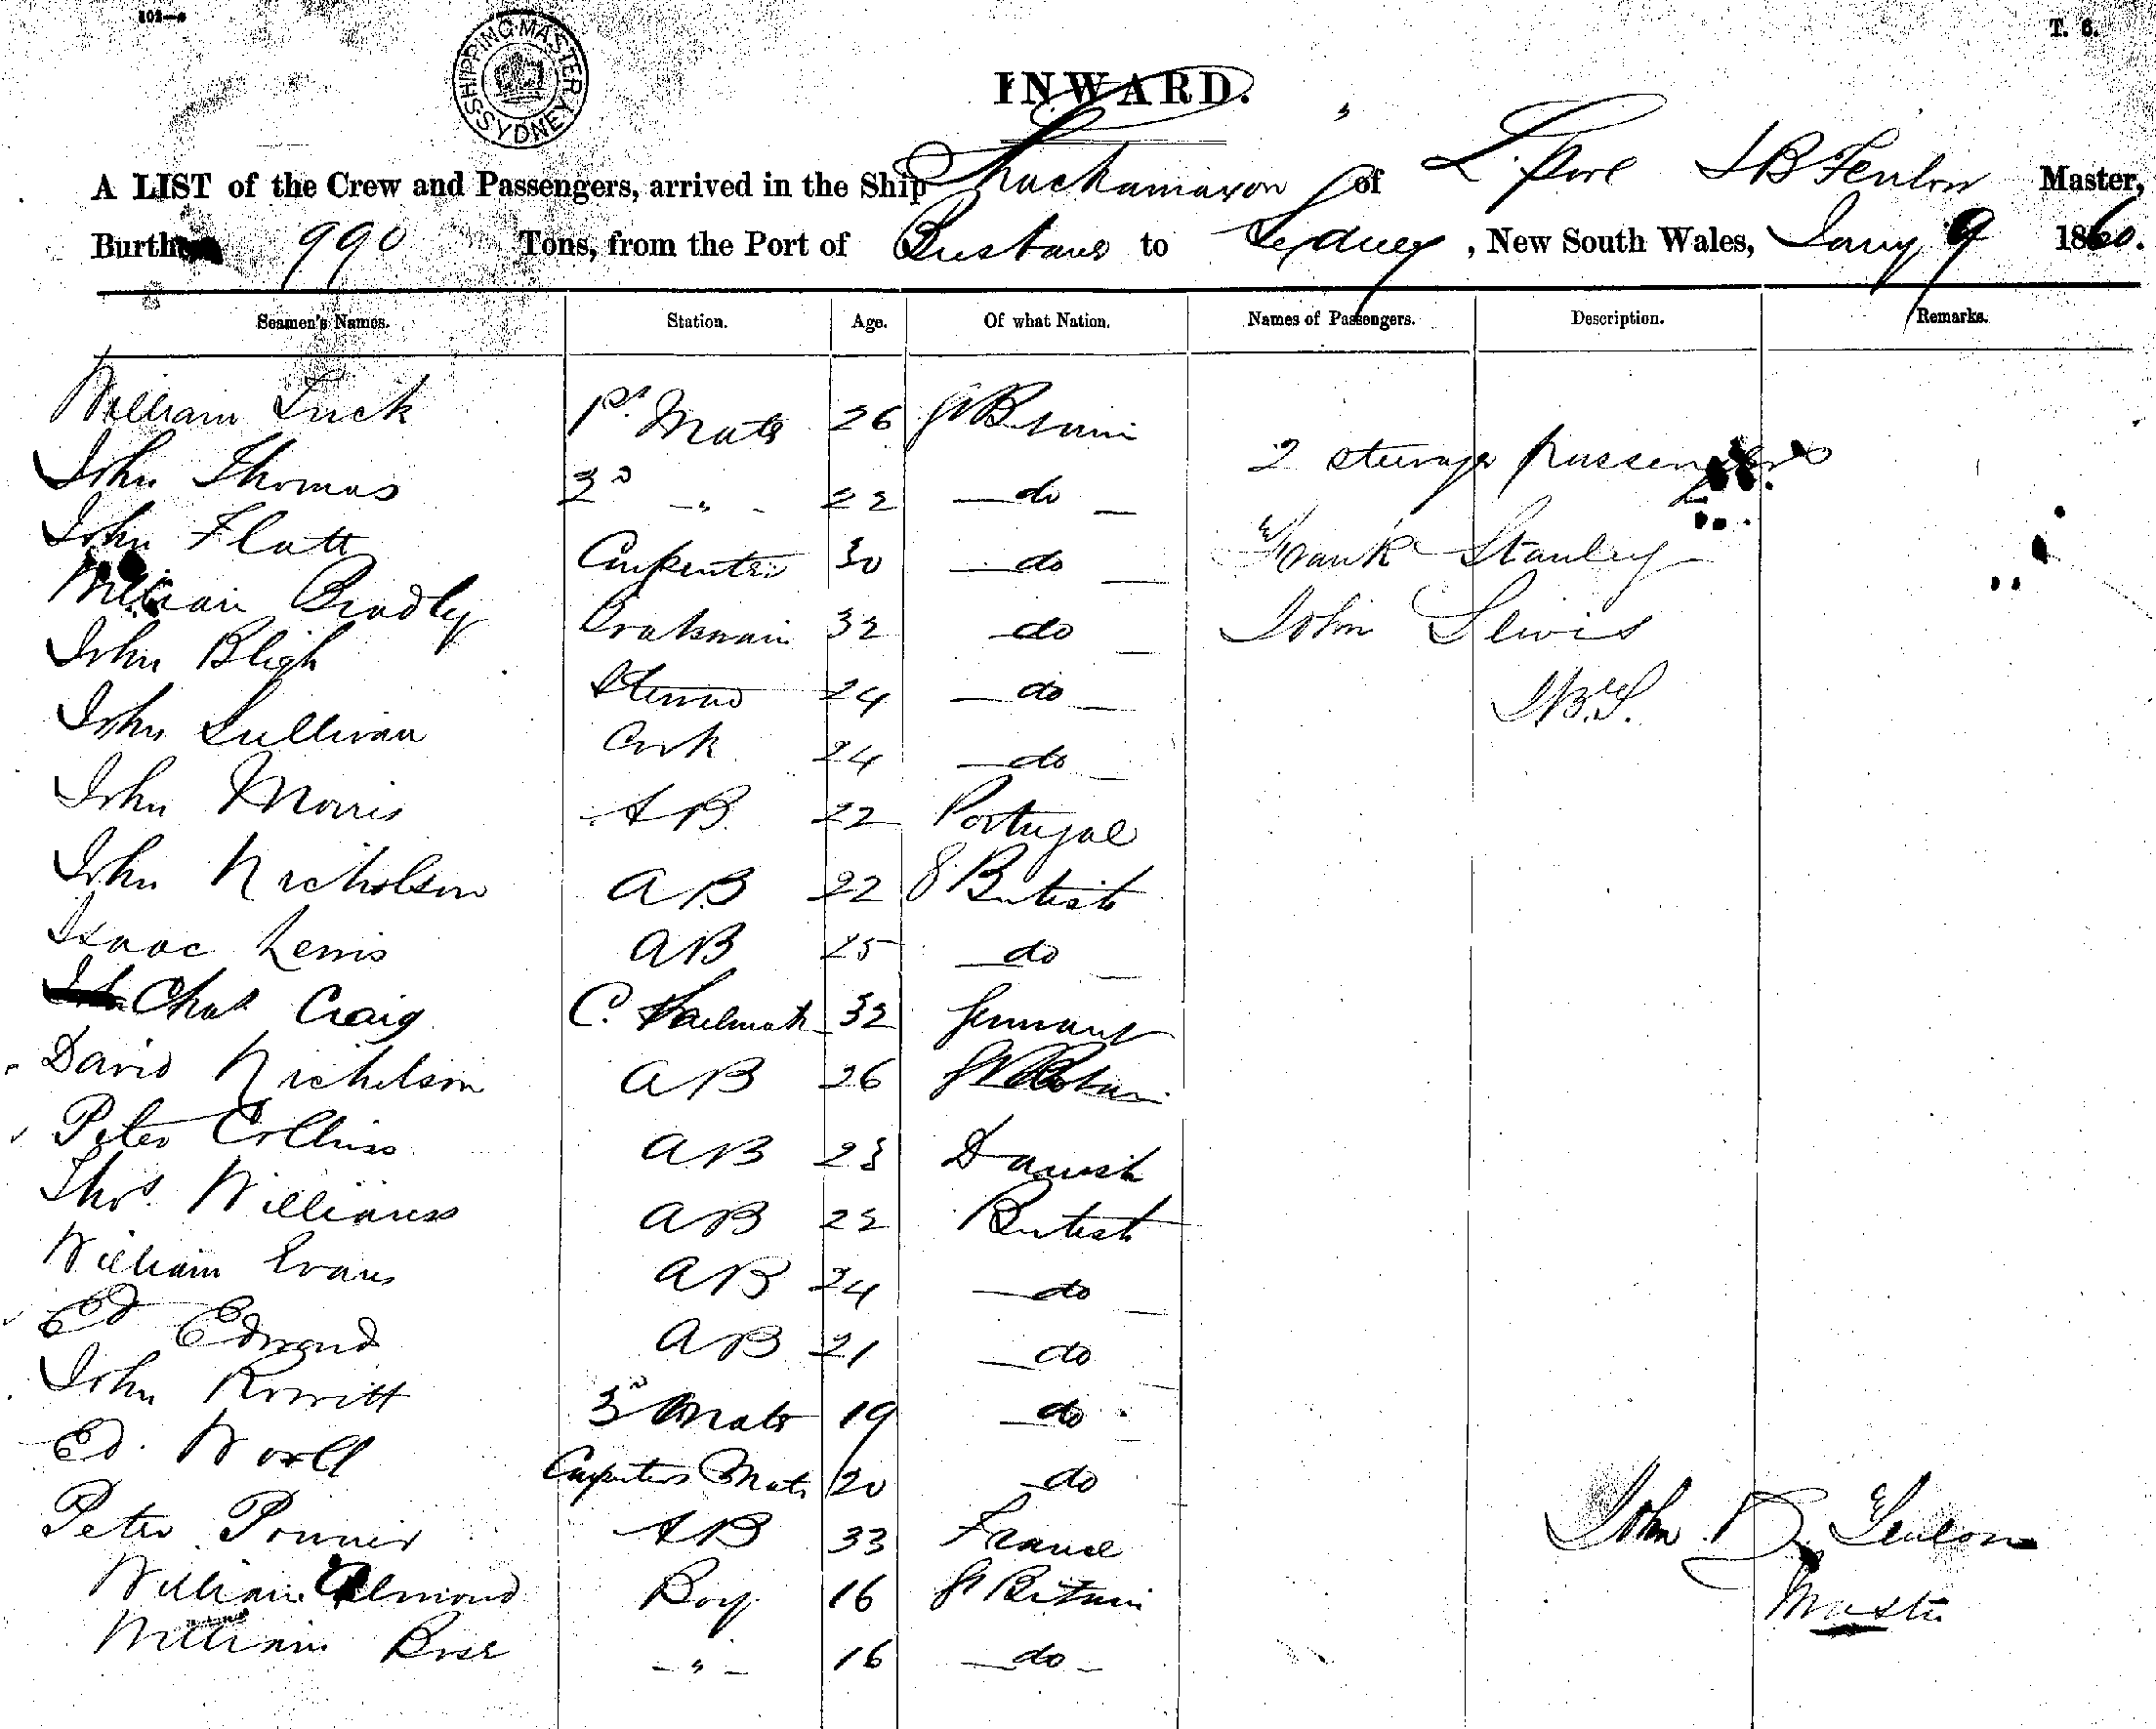 202—c
T. 6.
SHIPPING MASTER SYDNEY
INWARD.
A LIST of the Crew and Passengers, arrived in the Ship Shackamaxon of L.pool J B Fenlon Master,
Burthen 990 Tons, from the Port of to Sydney, New South Wales, Jany 9 1860.
Seamen's Names. Station. Age. Of what Nation. Names of Passengers. Description. Remarks.
William Luck 1st Mate 26 Gt Britain
2 steerage passengers
John Thomas 2d " 22 do
John Flatt Carpenter 30 do Frank Stanley
William Bradley 32 do John Lewis
John Bligh Steward 24 do J.B.F.
John Sullivan Cook 24 do
John Morris AB 22 Portugal
John Nicholson AB 22 British
Isaac Lewis AB 25 do
Chas Craig 32 Germany
David Nicholson AB 26 Gt Britain
Peter Collins AB 23 Danish
Thos. Williams AB 22 British
William Evans AB 24 do
Ed Edmond AB 21 do
John Rowitt 3d Mate 19 do
Ed. Carpenters Mate 20 do
Peter AB 33 France
John B. Fenlon
William Almond Boy 16 Gt Britain
Master
William " 16 do